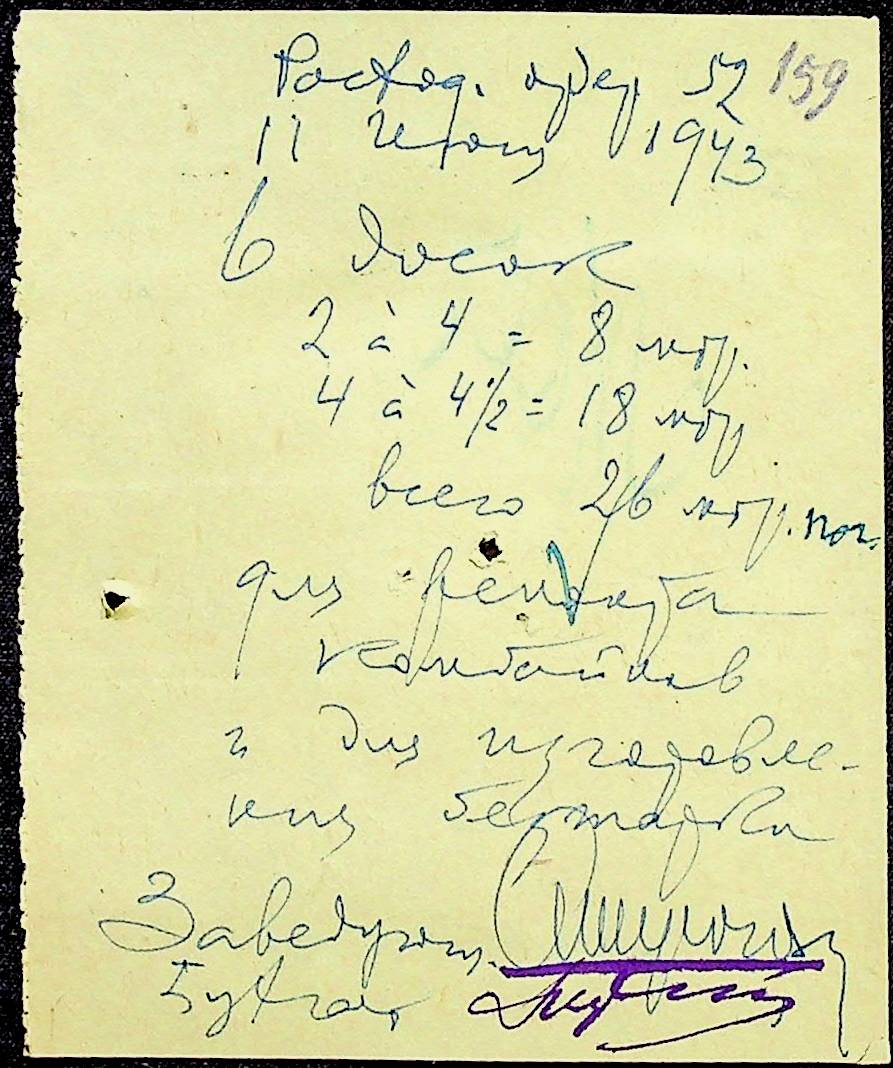 Расход. ордер 52 159
11 Июня 1943
6 досок
2 à 4 = 8 мтр.
4 à 4 1/2 = 18 мтр
всего 26 мтр. пог.
для ремонта
комбайнов
и для изготовле-
ния верстака
Заведующ.
Бухгал.